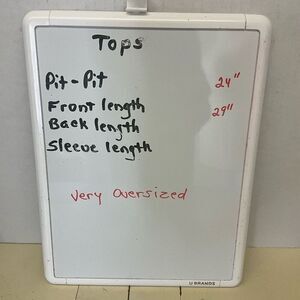 Tops
Pit-Pit 24"
Front length 29"
Back length
Sleeve length
Very Oversized
U BRANDS